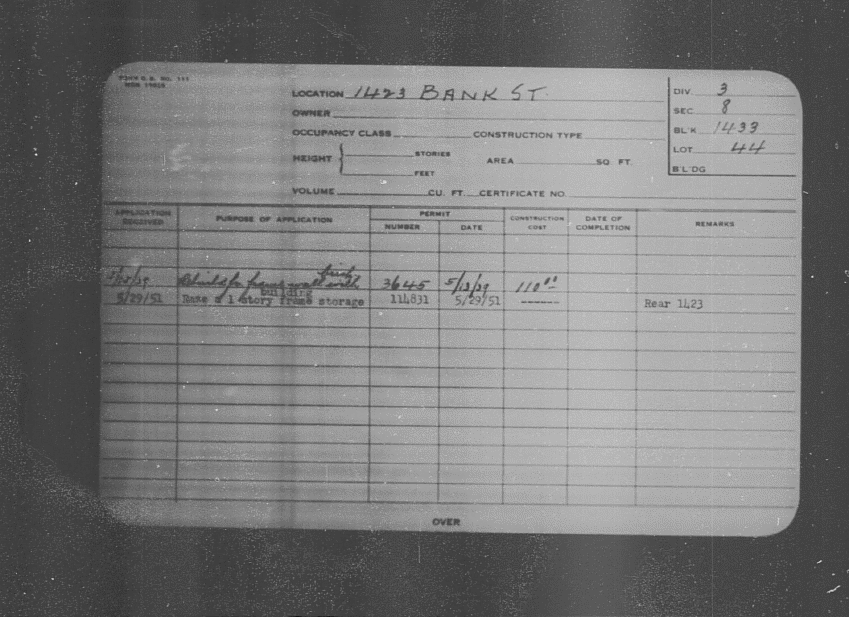 LOCATION 1423 BANK ST.
OWNER
OCCUPANCY CLASS CONSTRUCTION TYPE
HEIGHT STORIES AREA SQ. FT.
FEET
VOLUME CU. FT. CERTIFICATE NO.
DIV. 3
SEC 8
BL'K 1433
LOT 44
B'L'DG
APPLICATION RECEIVED PURPOSE OF APPLICATION PERMIT NUMBER DATE CONSTRUCTION COST DATE OF COMPLETION REMARKS
brick
frame wall with 3645 110.00
building
5/29/51 Raze a 1 story frame storage 114831 5/29/51 ------ Rear 1423
OVER